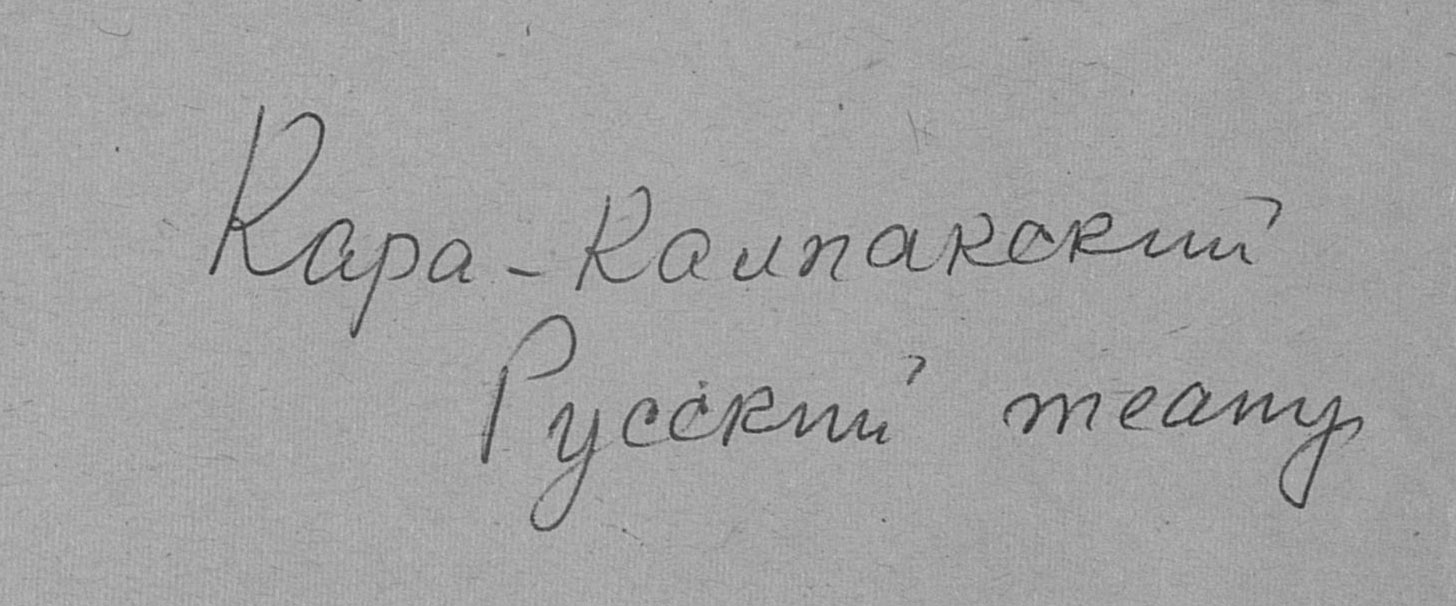 Кара-Калпакский
Русский театр